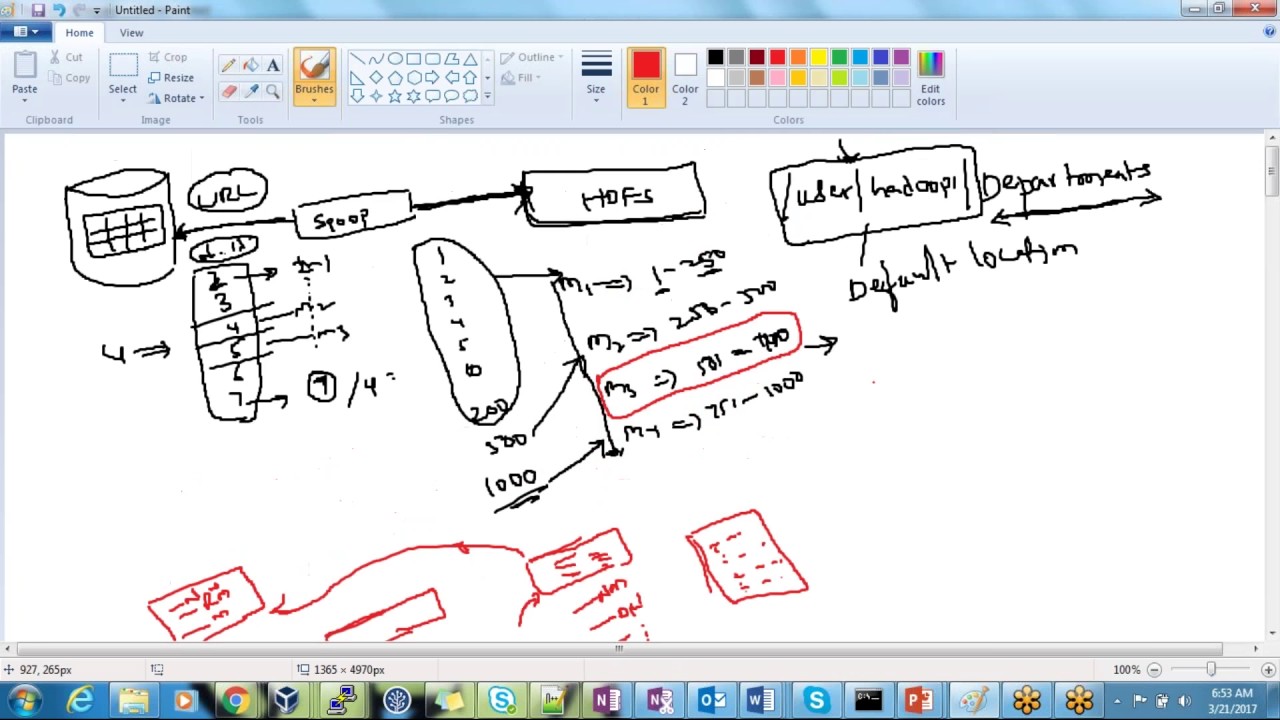 Untitled - Paint
Home
View
Paste
Cut
Copy
Clipboard
Select
Crop
Resize
Rotate
Image
Tools
Brushes
Shapes
Outline
Fill
Size
Color 1
Color 2
Edit colors
Colors
URL
Sqoop
HDFS
/user/hadoop1/Departments
Default location
2
3
4
5
6
7
4 =>
m2
m3
/4
1
2
3
4
5
10
200
500
1000
m1 => 1 - 250
m2 => - 500
m3 => 501 =
=> 751 - 1000
RM
NM
DN
927, 265px
1365 × 4970px
100%
6:53 AM
3/21/2017